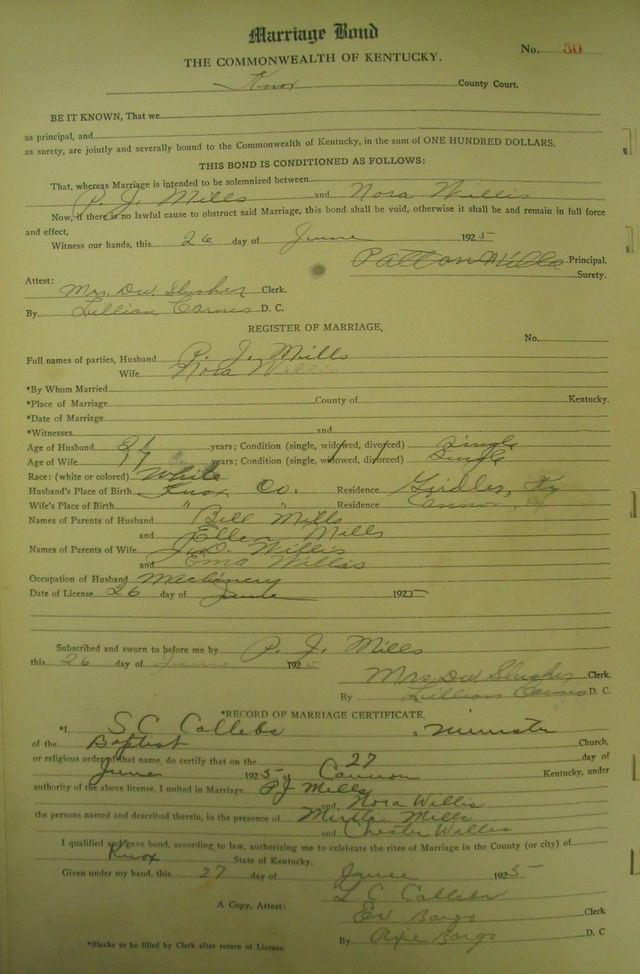 Marriage Bond
No. 30
THE COMMONWEALTH OF KENTUCKY.
Knox County Court.
BE IT KNOWN, That we
as principal, and
as surety, are jointly and severally bound to the Commonwealth of Kentucky, in the sum of ONE HUNDRED DOLLARS.
THIS BOND IS CONDITIONED AS FOLLOWS:
That, whereas Marriage is intended to be solemnized between
P. J. Mills and Nora Willis
Now, if there is no lawful cause to obstruct said Marriage, this bond shall be void, otherwise it shall be and remain in full force
and effect,
Witness our hands, this 26 day of June 1925
Patton Mills Principal.
Surety.
Attest:
Mrs. DW. Slusher Clerk.
By Lillian Carnes D. C.
REGISTER OF MARRIAGE,
No.
Full names of parties, Husband P. J. Mills
Wife Nora Willis
*By Whom Married
*Place of Marriage County of Kentucky.
*Date of Marriage
*Witnesses and
Age of Husband 21 years; Condition (single, widowed, divorced) Single
Age of Wife 17 years; Condition (single, widowed, divorced) Single
Race: (white or colored) White
Husband's Place of Birth Knox Co. Residence Girdler, Ky
Wife's Place of Birth " " Residence Cannon, Ky
Names of Parents of Husband Bill Mills
and Ellen Mills
Names of Parents of Wife J. D. Willis
and Ema Willis
Occupation of Husband Machinery
Date of License 26 day of June 1925
Subscribed and sworn to before me by P. J. Mills
this 26 day of June 1925
Mrs. DW. Slusher Clerk.
By Lillian Carnes D. C.
*RECORD OF MARRIAGE CERTIFICATE.
*I, S C Callebs, Minister
of the Baptist Church,
or religious order of that name, do certify that on the 27 day of
June 1925 at Cannon Kentucky, under
authority of the above license, I united in Marriage P J Mills
and Nora Willis
the persons named and described therein, in the presence of Mills
and Chester Willis
I qualified and gave bond, according to law, authorizing me to celebrate the rites of Marriage in the County (or city) of
Knox State of Kentucky.
Given under my hand, this 27 day of June 1925
S C Callebs
A Copy, Attest: Ed Bargo Clerk
By Bargo D. C
*Blanks to be filled by Clerk after return of License.